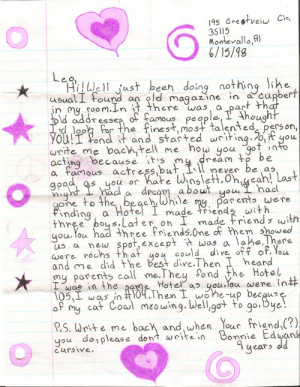 195 Crestveiw Cir.
35115
Montevallo, Al
6/15/98
Leo,
Hi! Well just been doing nothing like
usual. I found an old magazine in a cupbert
in my room. In it there was a part that
told addresses of famous people, I thought
I'd look for the finest, most talented, person,
YOU! I fond it and started writing. So, if you
write me back, tell me how you got into
acting because it's my dream to be
a famous actress, but I'll never be as
good as you or Kate Winslett. Oh, yeah! Last
night I had a dream about you. I had
gone to the beach. While my parents were
finding a Hotel I made friends with
three boys. Later on I made friends with
you. You had three friends. One of them showed
us a new spot, except it was a lake. There
were rocks that you could dive off of. You
and me did the best dive. Then I heard
my parents call me. They fond the Hotel.
I was in the same Hotel as you. You were in #
105, I was in #104. Then I woke-up because
of my cat Cowl meowing. Well, got to go. Bye!
P.S. Write me back and, when Your friend, (?)
you do, please don't write in Bonnie Edwards
cursive. 9 years old